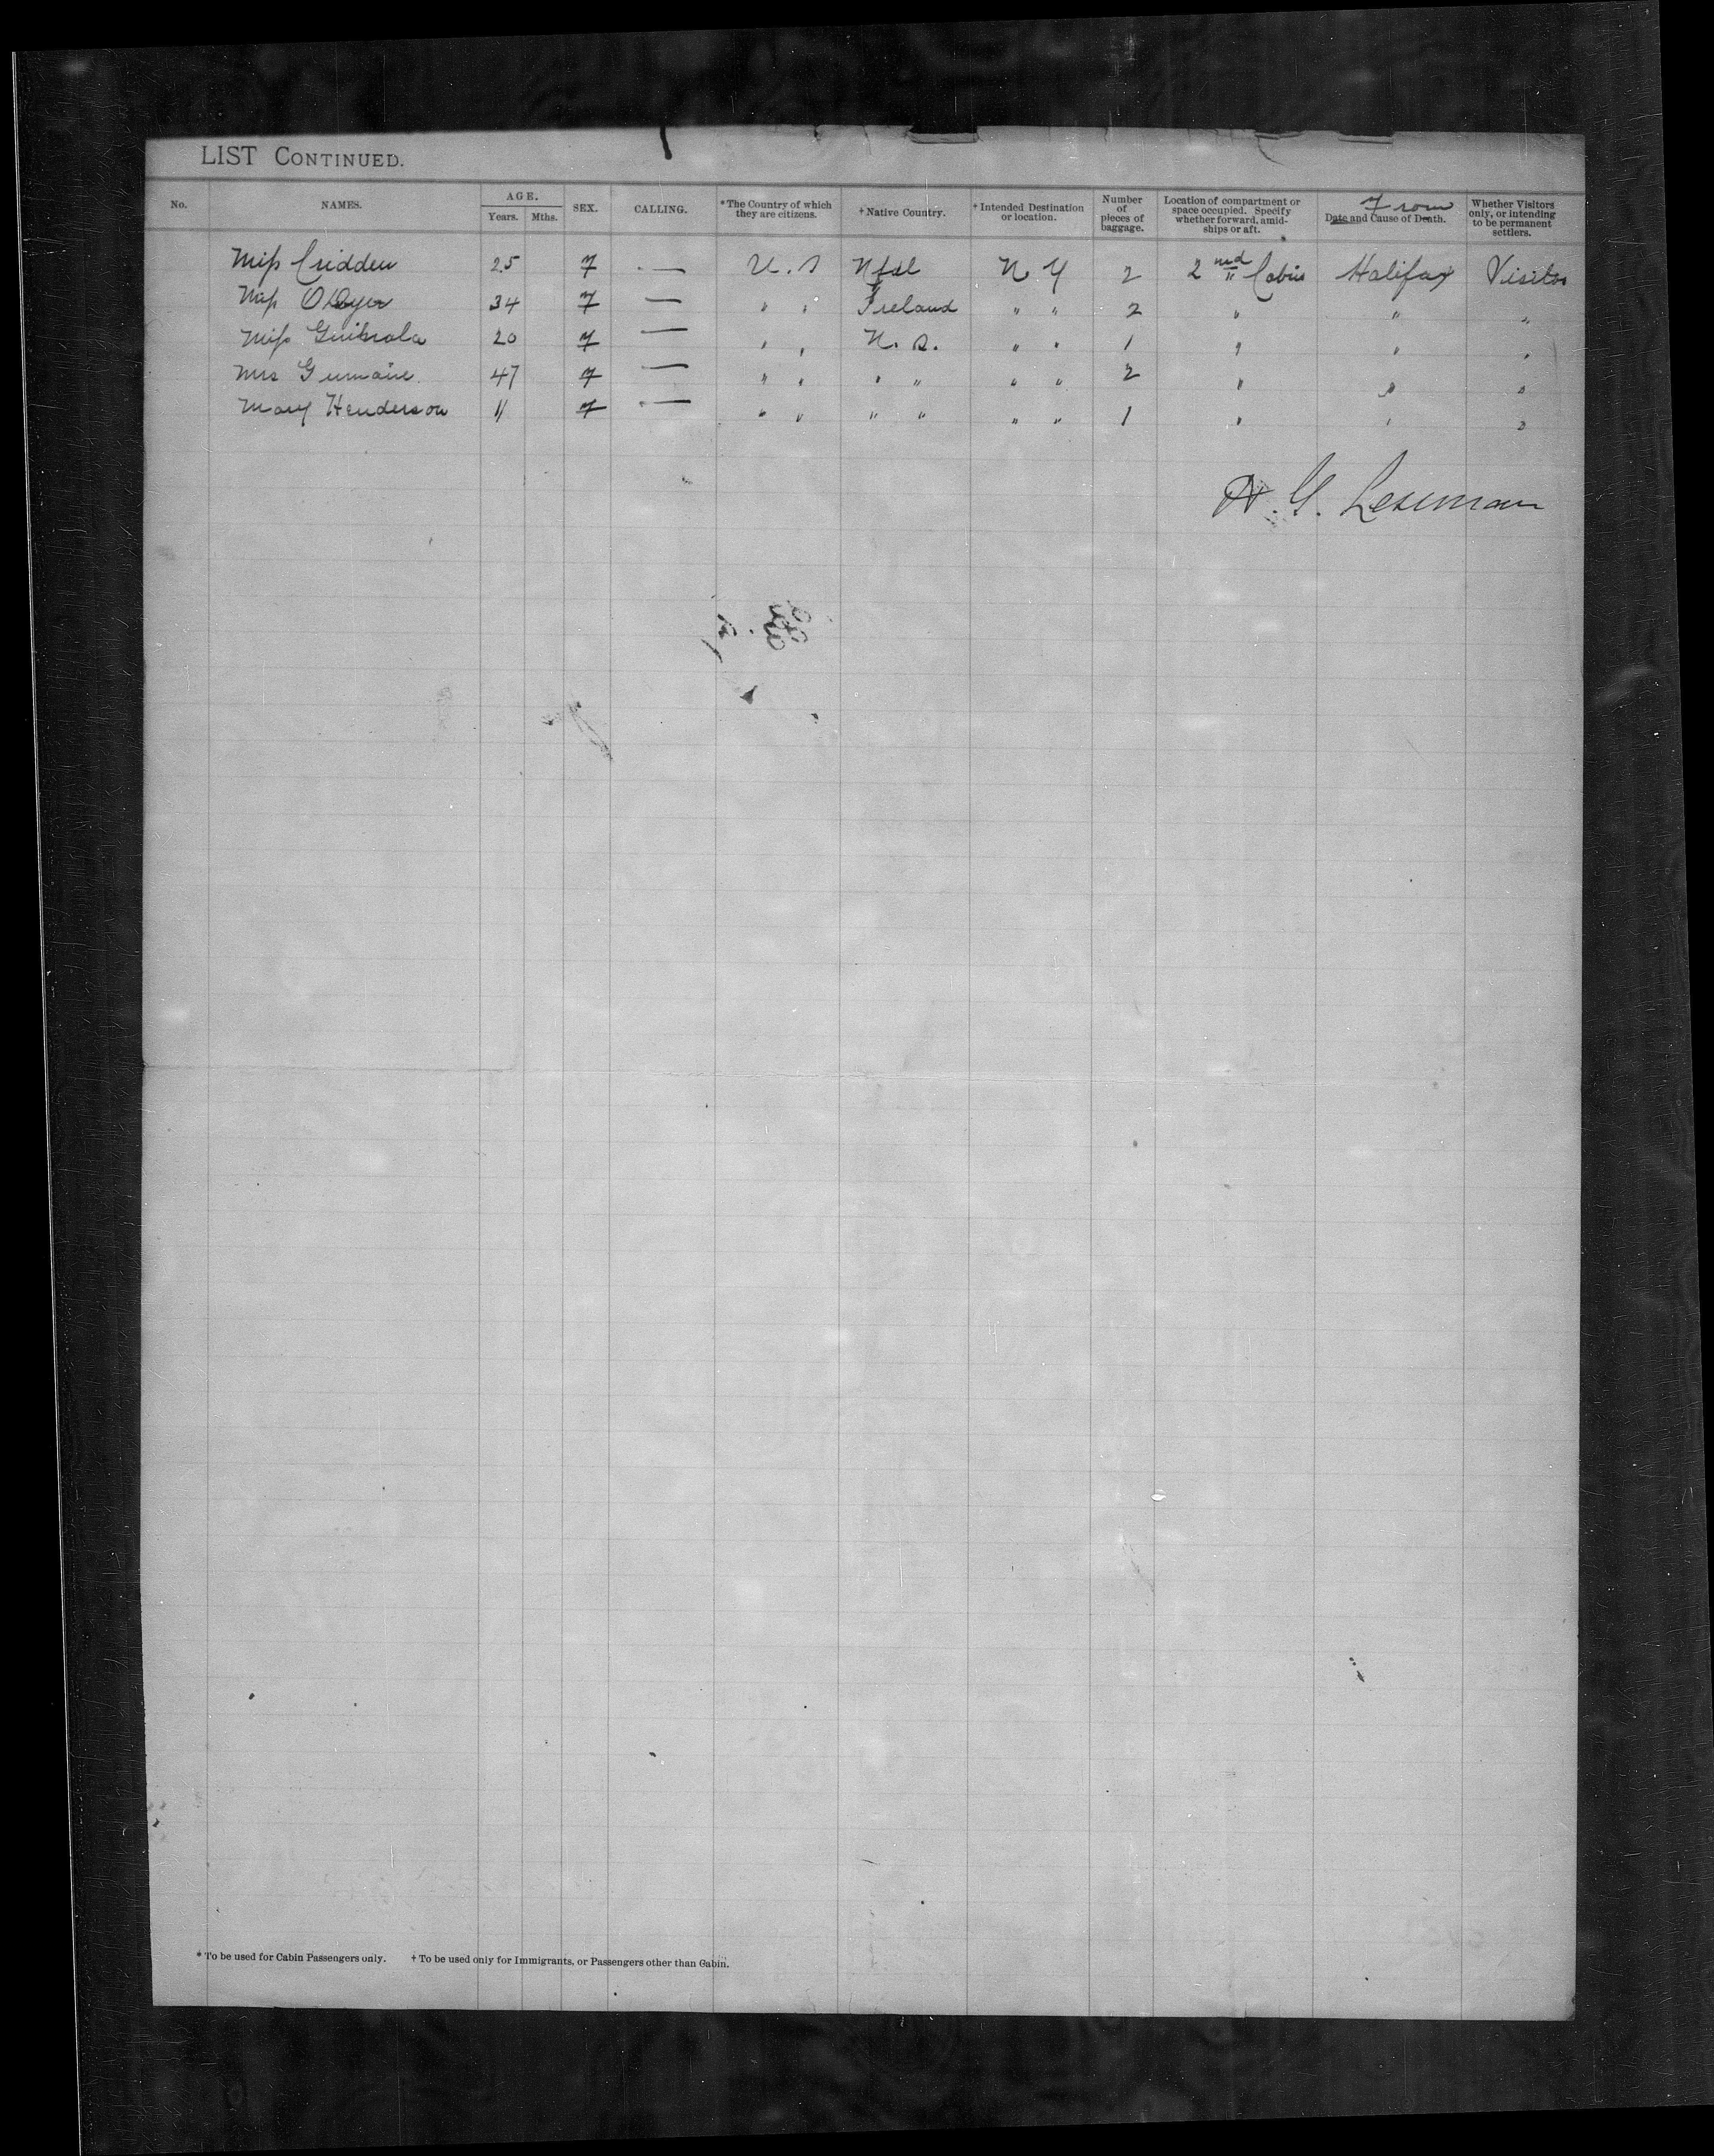 LIST CONTINUED.
No. NAMES. AGE. Years. Mths. SEX. CALLING. *The Country of which they are citizens. †Native Country. †Intended Destination or location. Number of pieces of baggage. Location of compartment or space occupied. Specify whether forward, amid-ships or aft. From Date and Cause of Death. Whether Visitors only, or intending to be permanent settlers.
Miss Cridden 25 F — U.S Nfdl N Y 2 2nd Cabin Halifax Visitor
Miss O'Dyer 34 F — " " Ireland " " 2 " " "
Miss 20 F — " " N. S. " " 1 " " "
Mrs 47 F — " " " " " " 2 " " "
Mary Henderson 11 F — " " " " " " 1 " " "
* To be used for Cabin Passengers only. † To be used only for Immigrants, or Passengers other than Cabin.